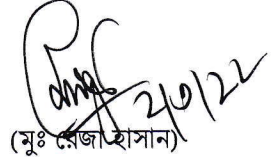 ২/৩/২২
(মুঃ রেজা হাসান)